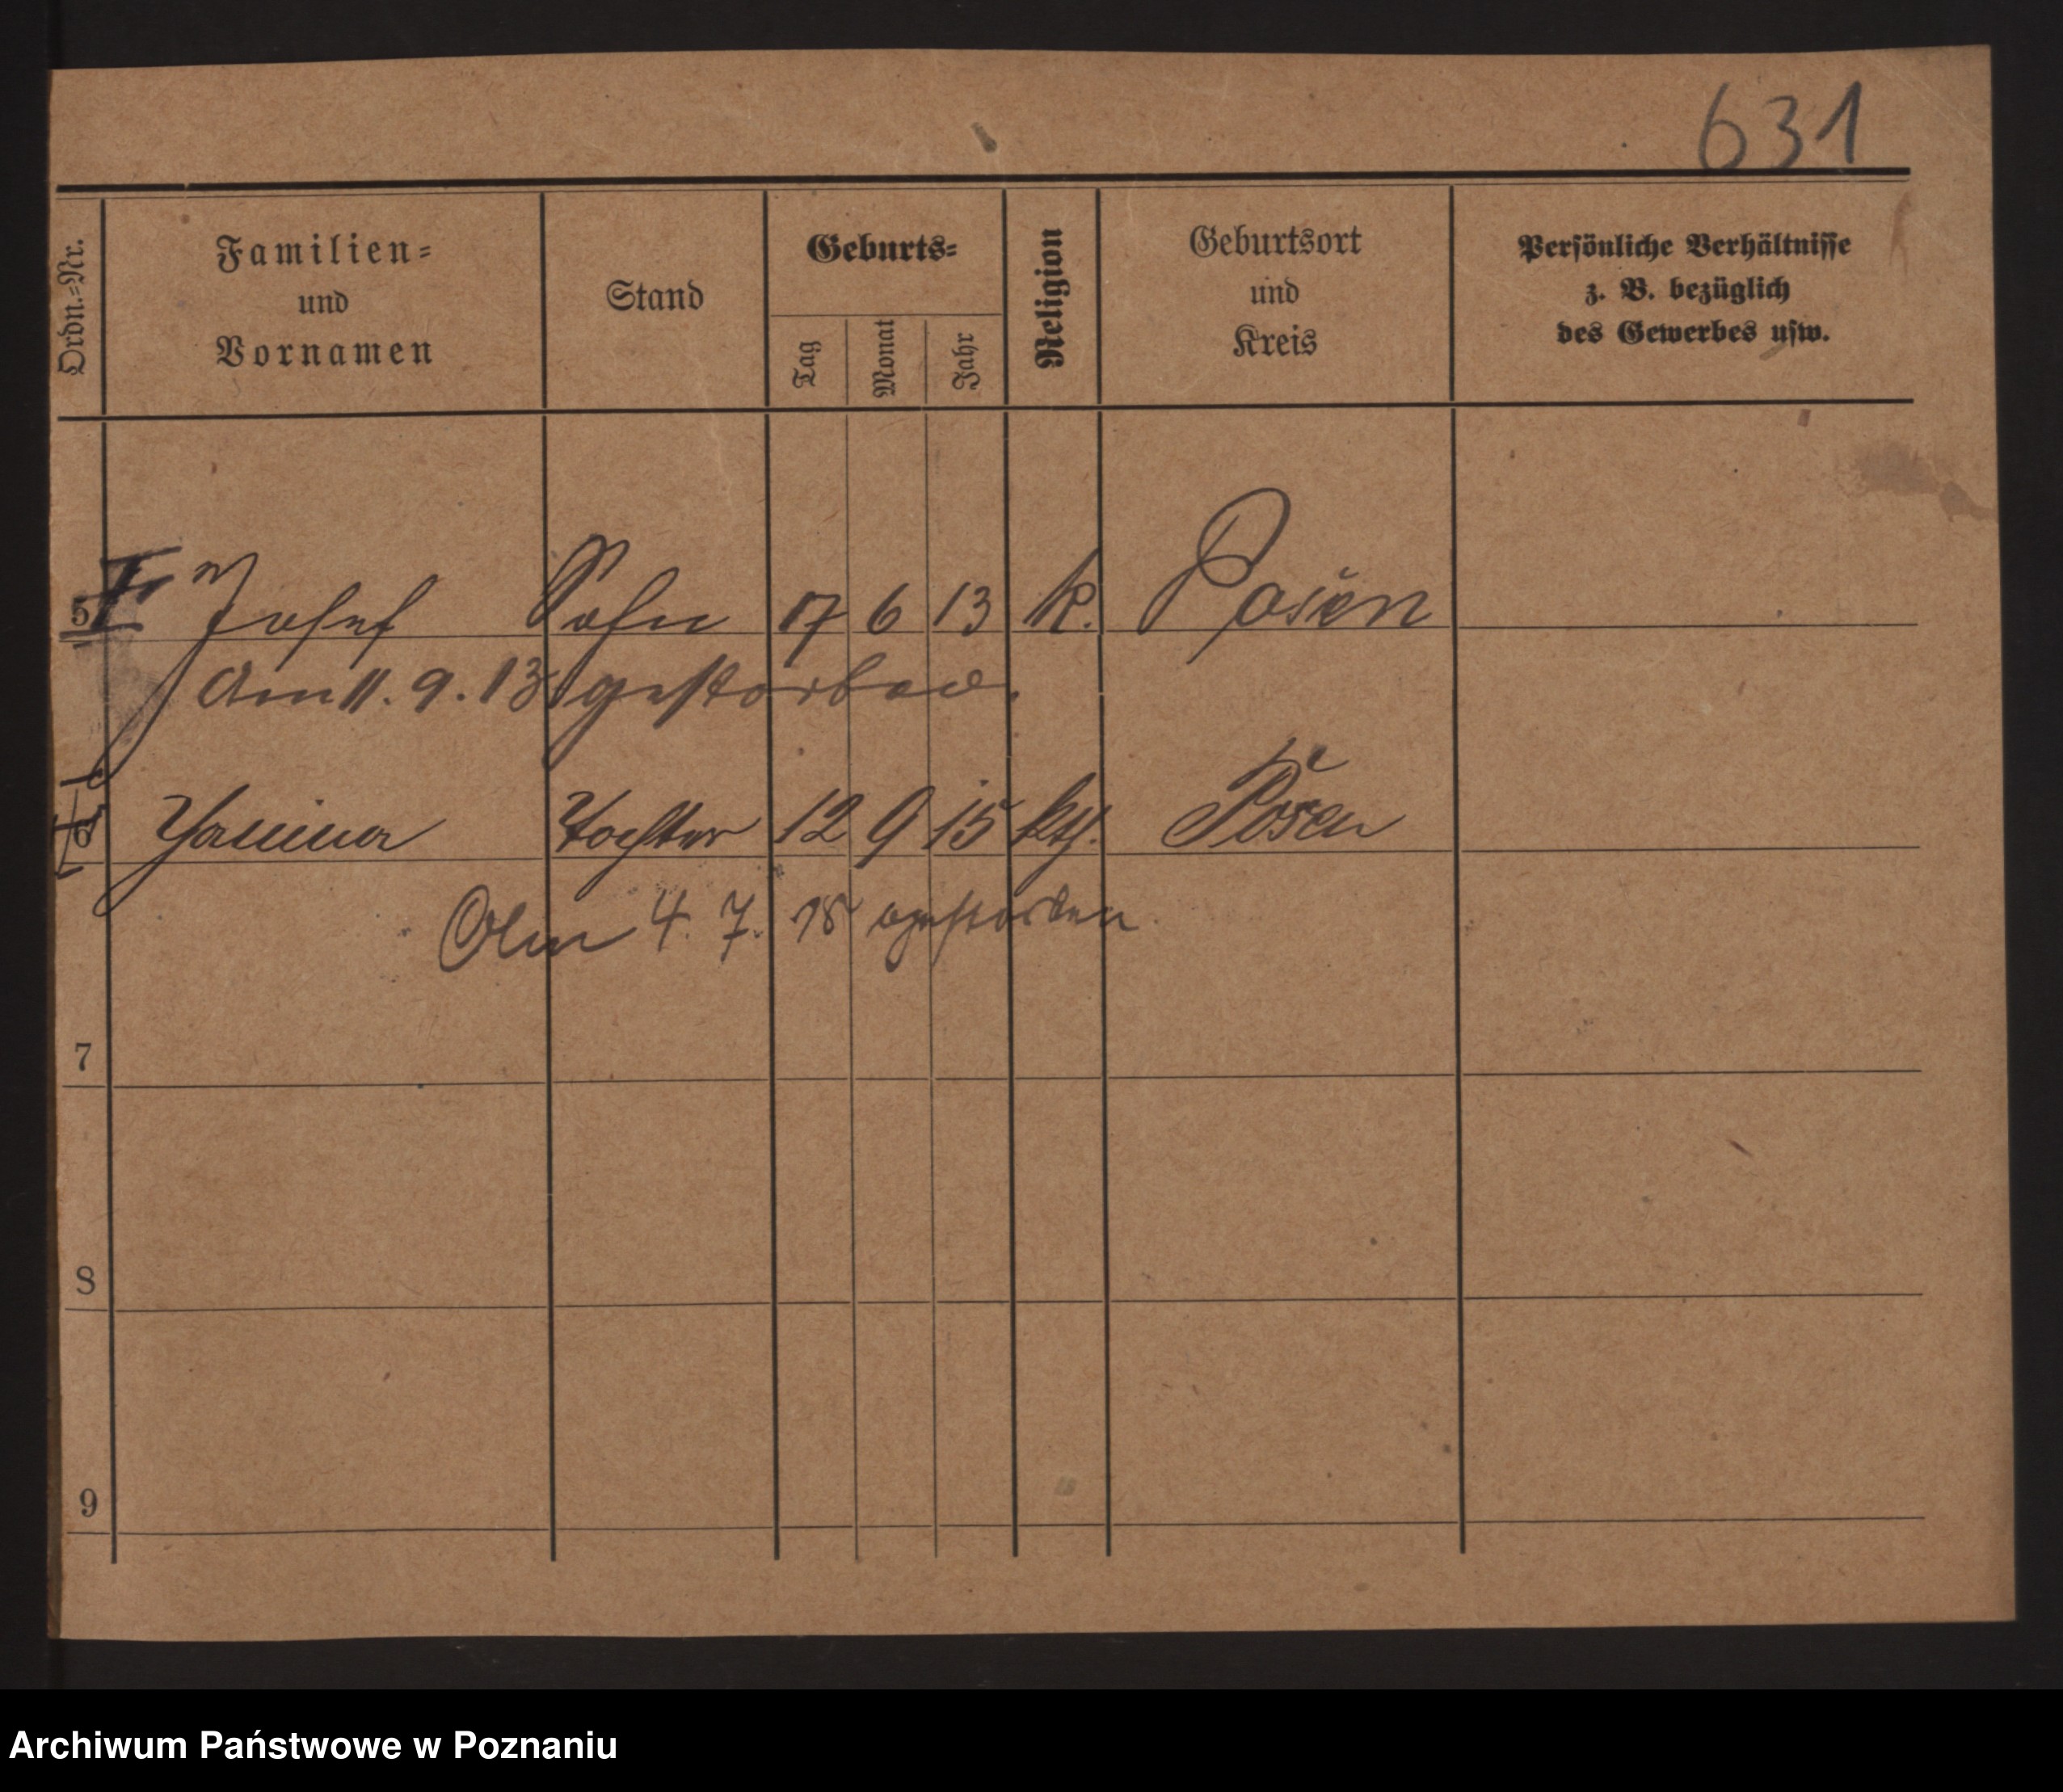 631
Ordn.=Nr.
Familien=
und
Vornamen
Stand
Geburts=
Tag
Monat
Jahr
Religion
Geburtsort
und
Kreis
Persönliche Verhältnisse
z. B. bezüglich
des Gewerbes usw.
5 Josef Sohn 17 6 13 k. Posen
Am 11. 9. 13 gestorben.
6 Janina Tochter 12 9 15 kth. Posen
Am 4. 7. 18 gestorben.
7
8
9
Archiwum Państwowe w Poznaniu